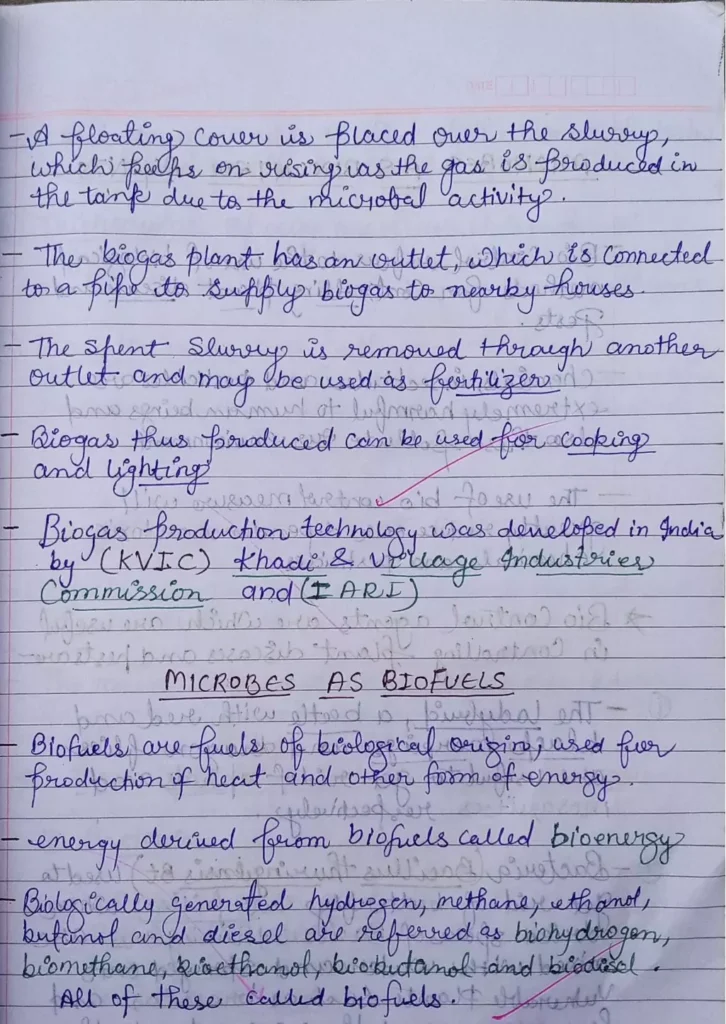 - A floating cover is placed over the slurry,
which keeps on rising as the gas is produced in
the tank due to the microbal activity.
- The biogas plant has an outlet, which is connected
to a pipe to supply biogas to nearby houses.
- The spent slurry is removed through another
outlet and may be used as fertilizer
- Biogas thus produced can be used for cooking
and lighting
- Biogas production technology was developed in India
by (KVIC) Khadi & Village Industries
Commission and (IARI)
MICROBES AS BIOFUELS
- Biofuels are fuels of biological origin, used for
production of heat and other form of energy.
- energy derived from biofuels called bioenergy
- Biologically generated hydrogen, methane, ethanol,
butanol and diesel are referred as biohydrogen,
biomethane, bioethanol, biobutanol and biodisel.
All of these called biofuels.